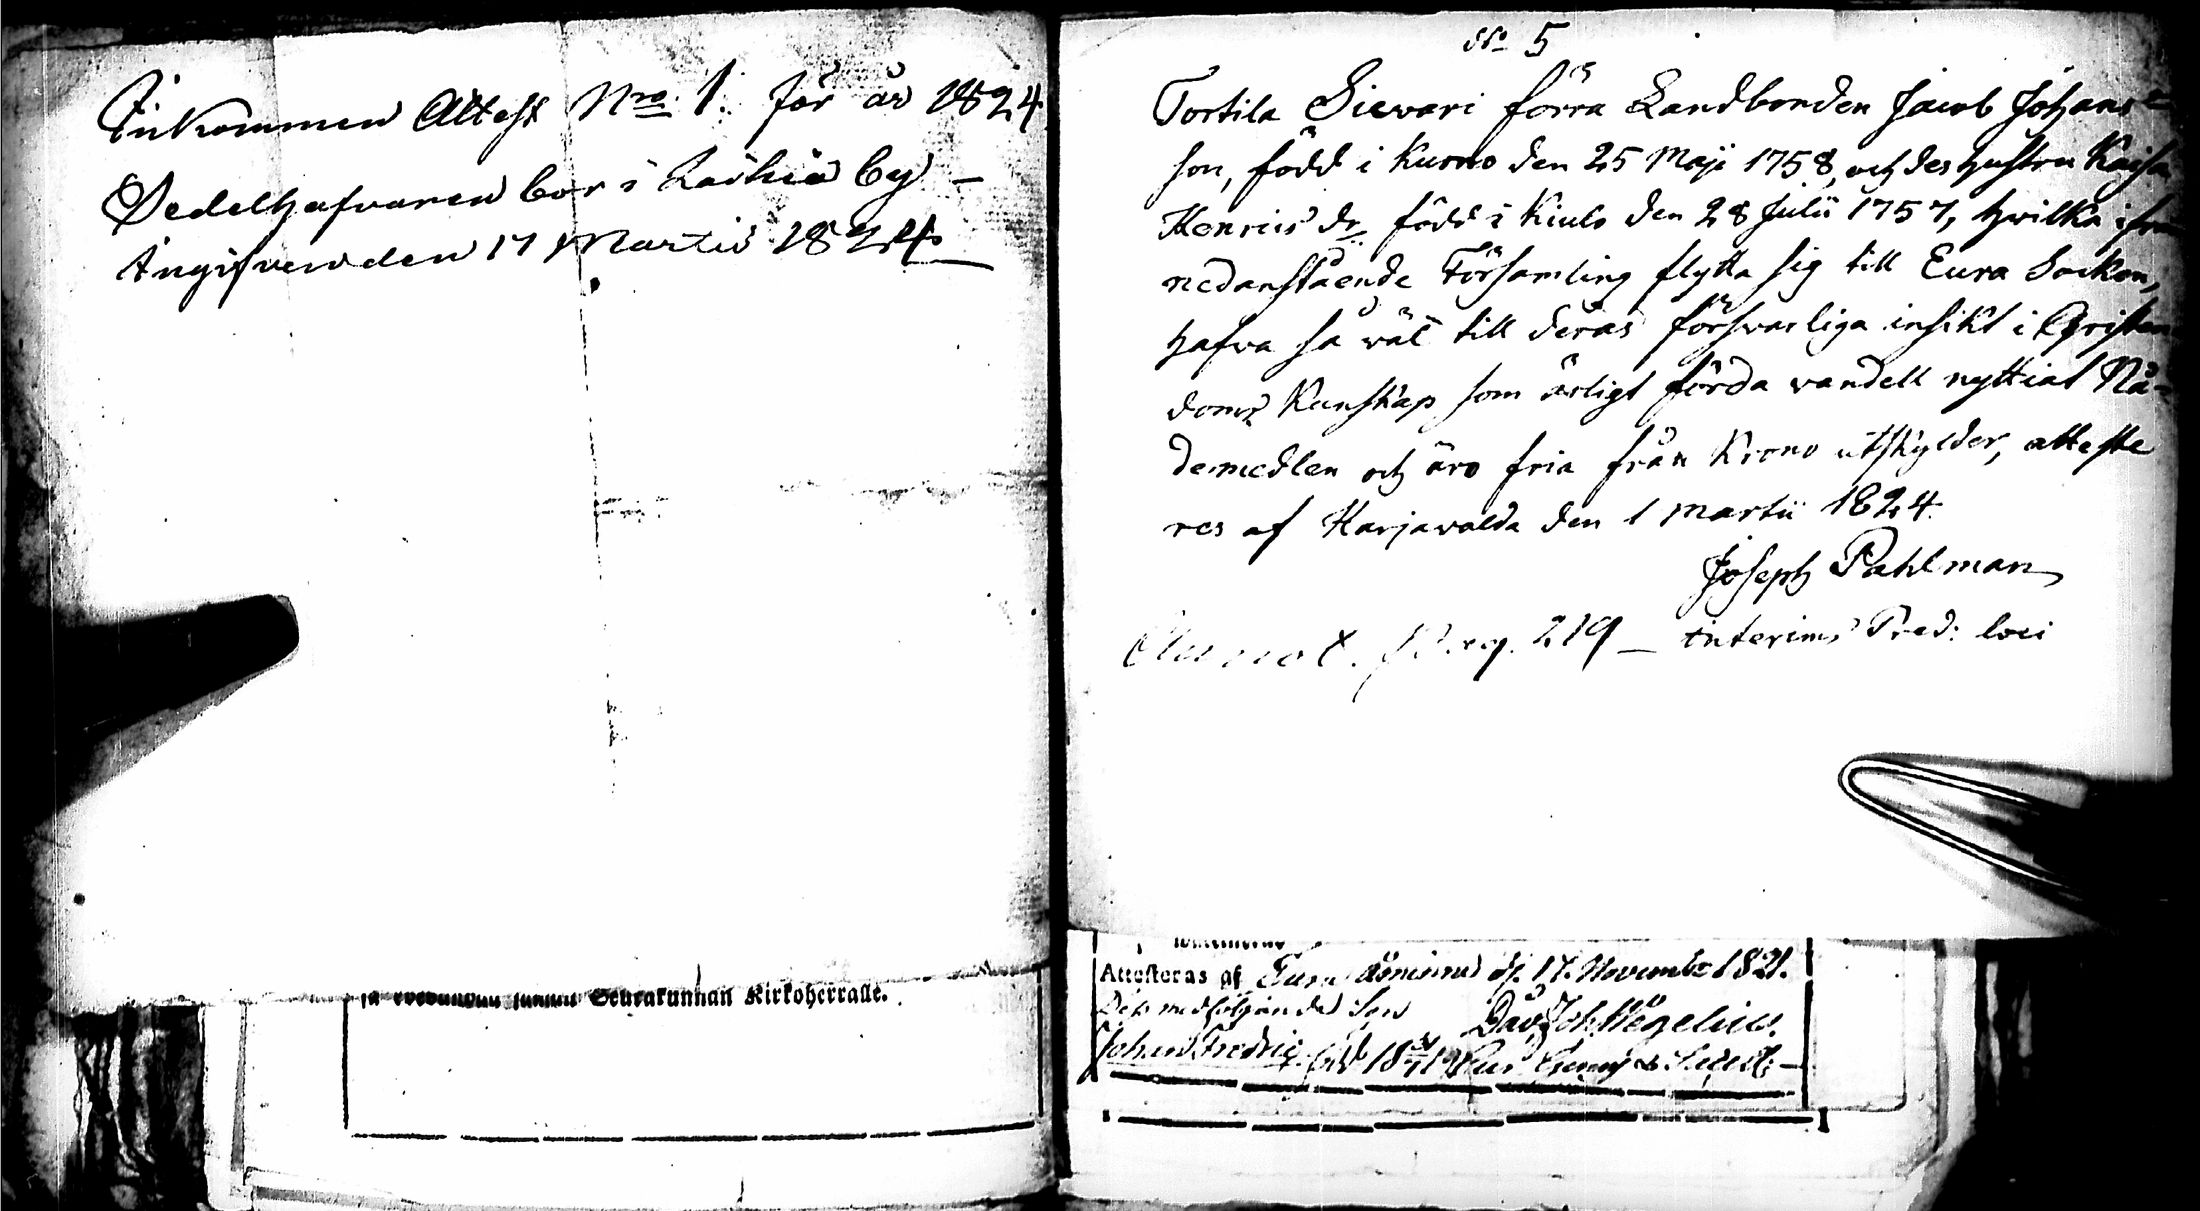 Inkommen Attest Nro 1. för år 1824.
Sedelhafvaren bor i by –
Angifven den 17 Martii 1824.
No 5
Tortila Sievari förra Landbonden Jacob Johans-
son, född i Kumo den 25 Maji 1758, och des hustru Kaisa
Henrics dr född i Kiulo den 28 Julii 1757, hvilka ifrån
nedanstående Församling flytta sig till Eura Sockn,
hafva så väl till deras försvarliga insikt i Christen
doms Kunskap som ärligt förda vandell nyttiat Nå-
demedlen och äro fria från Krono utskylder, atteste
res af Harjavalda den 1 Martii 1824.
Joseph Pahlman
interims Pred: loci
Annot. pag. 219 –
Seurakunnan Kirkoherralle.
Attesteras af Eura d. 17. Novemb: 1821.
Dess medföljande Son Dav. Joh. Hegelius.
Johan Fredric